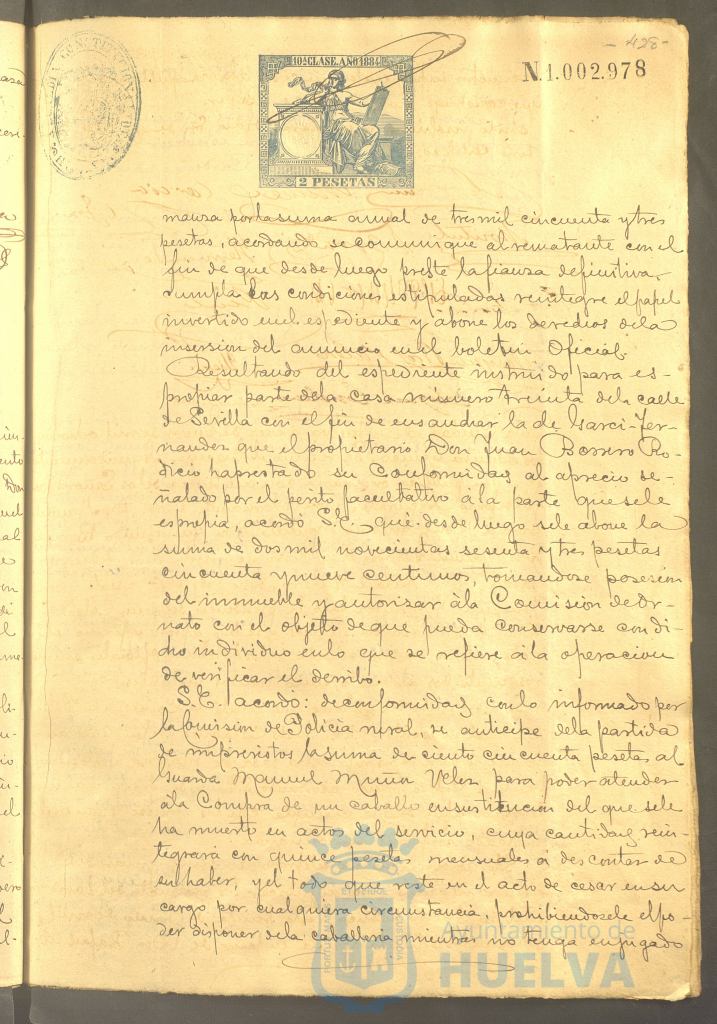 - 428 -
10ª CLASE. AÑO 1884
N.1.002.978
2 PESETAS
manza por la suma anual de tres mil cincuenta y tres
pesetas, acordando se comunique al rematante con el
fin de que desde luego preste la fianza definitiva,
cumpla las condiciones estipuladas reintegre el papel
invertido en el espediente y abone los derechos dela
insersion del anuncio en el boletin Oficial.
Resultando del espediente instruido para es-
propiar parte dela casa número treinta dela calle
de Sevilla con el fin de ensanchar la de Garci-Fer-
nandez que el propietario Don Juan Borrero Ro-
dicio ha prestado su Conformidad al aprecio se-
ñalado por el perito facultativo á la parte que sele
espropia, acordó S.E. que desde luego sele abone la
suma de dos mil novecientas sesenta y tres pesetas
cincuenta y nueve centimos, tomandose posesion
del inmueble y autorizar á la Comision de Or-
nato con el objeto de que pueda conservarse con di-
cho individuo en lo que se refiere á la operacion
de verificar el derribo.
S.E. acordó: de conformidad con lo informado por
la Comision de Policia rural, se anticipe dela partida
de imprevistos la suma de ciento cincuenta pesetas al
Guarda Manuel Muñoz Velez para poder atender
á la Compra de un caballo en sustitucion del que sele
ha muerto en actos del servicio, cuya cantidad rein-
tegrará con quince pesetas mensuales á descontar de
su haber, y el todo que reste en el acto de cesar en su
cargo por cualquiera circunstancia, prohibiendosele el po-
der disponer dela caballeria mientras no tenga enjugado
Ayuntamiento de
HUELVA